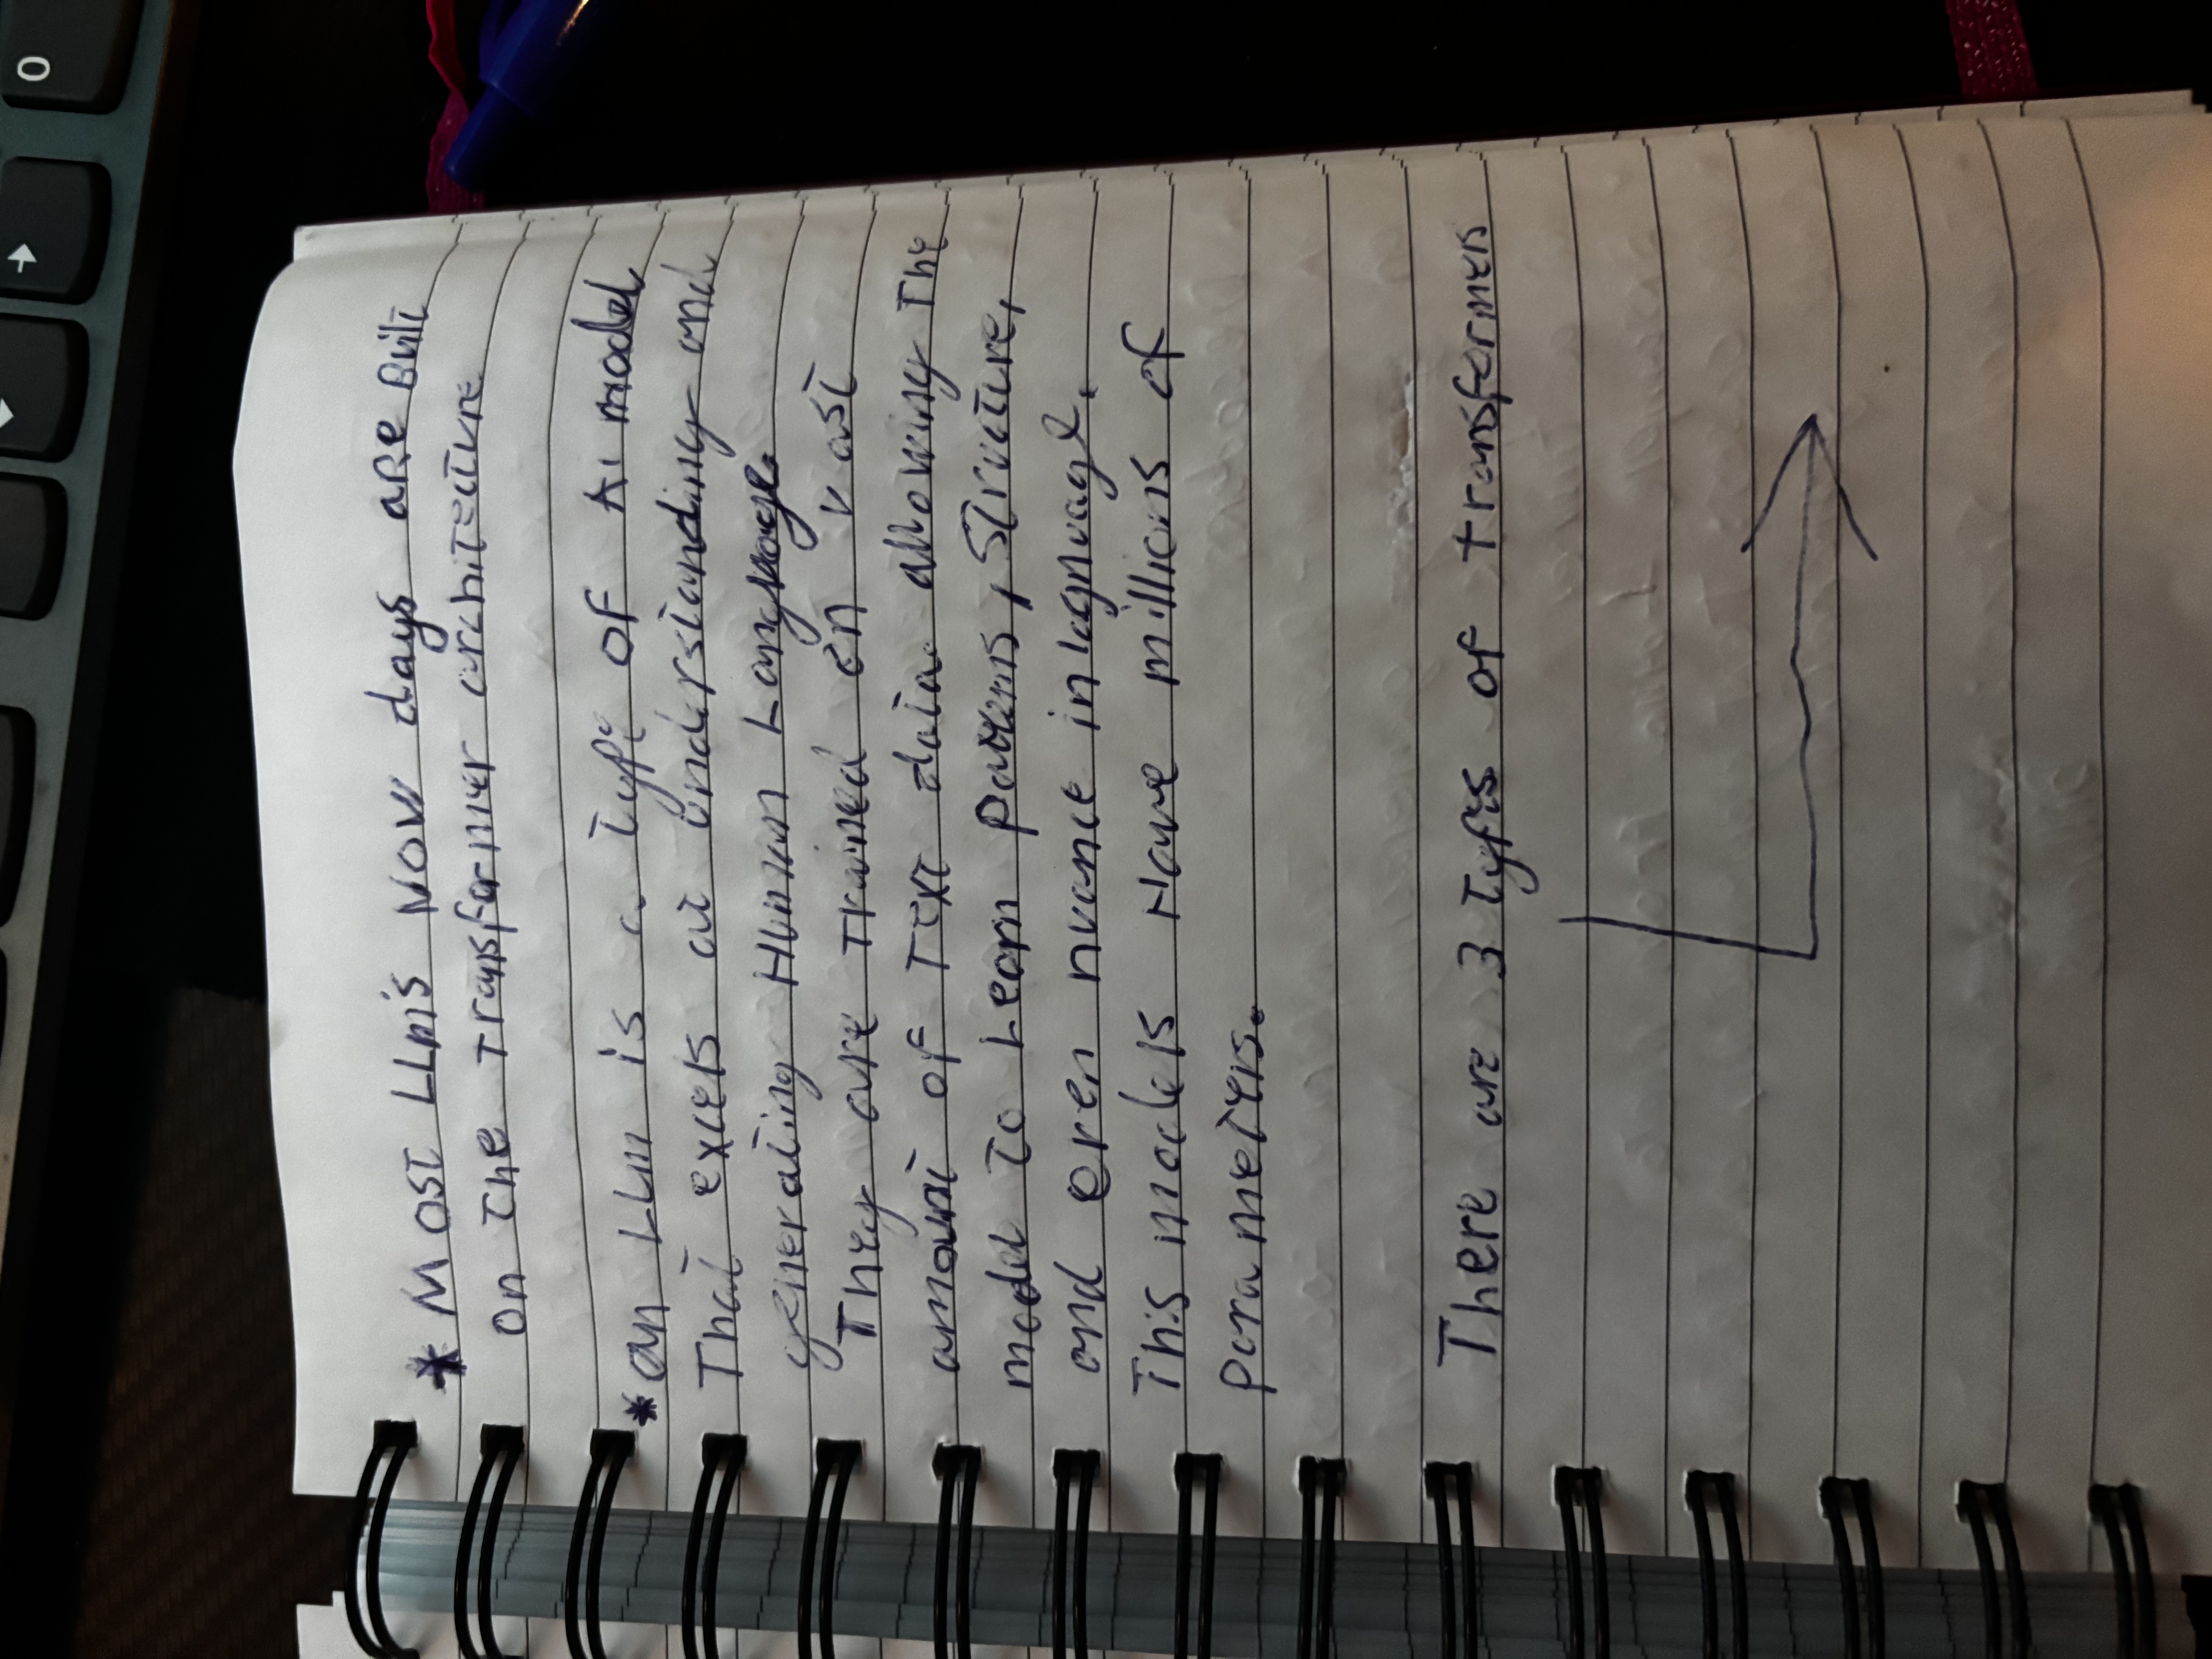 0
* Most LLm's Now days are Built
on The Transformer architecture
* an LLm is a Type of Ai model
That excels at understanding and
generating Human Language.
They are trained en vast
amount of Text data. allowing The
model To Learn patterns, Structure,
and even nuance in lagnuage.
This models Have millions of
parameters.
There are 3 Types of transformers